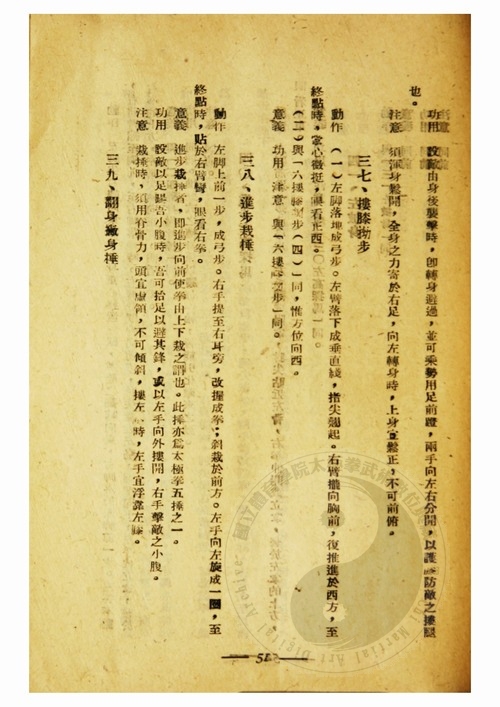 也。
功用　設敵由身後襲擊時，卽轉身避過，並可乘勢用足前蹬，兩手向左右分開，以護防敵之摟腿
注意　須渾身鬆開，全身之力寄於右足，向左轉身時，上身宜鬆正，不可前俯。
三七、摟膝拗步
動作　（一）左脚落地成弓步。左臂落下成垂直綫，指尖翹起。右臂攏向胸前，復推進於西方，至
終點時，掌心微挺，眼看正西。
（二）與「六摟膝拗步（四）」同，惟方位向西。
意義　功用　注意　與「六摟膝拗步」同。
三八、進步栽捶
動作　左脚上前一步，成弓步。右手提至右耳旁，改握成拳，斜栽於前方。左手向左旋成一圈，至
終點時，貼於右臂彎，眼看右拳。
意義　進步栽捶者，卽進步向前使拳由上下栽之謂也。此捶亦爲太極拳五捶之一。
功用　設敵以足踢吾小腹時，吾可抬足以避其鋒，或以左手向外摟開，右手擊敵之小腹。
注意　栽捶時，須用脊骨力，頭宜虛領，不可傾斜，摟左 時，左手宜浮靠左膝。
三九、翻身撇身捶
國立體育學院太極拳武藝數位
Martial Art Digital Archive